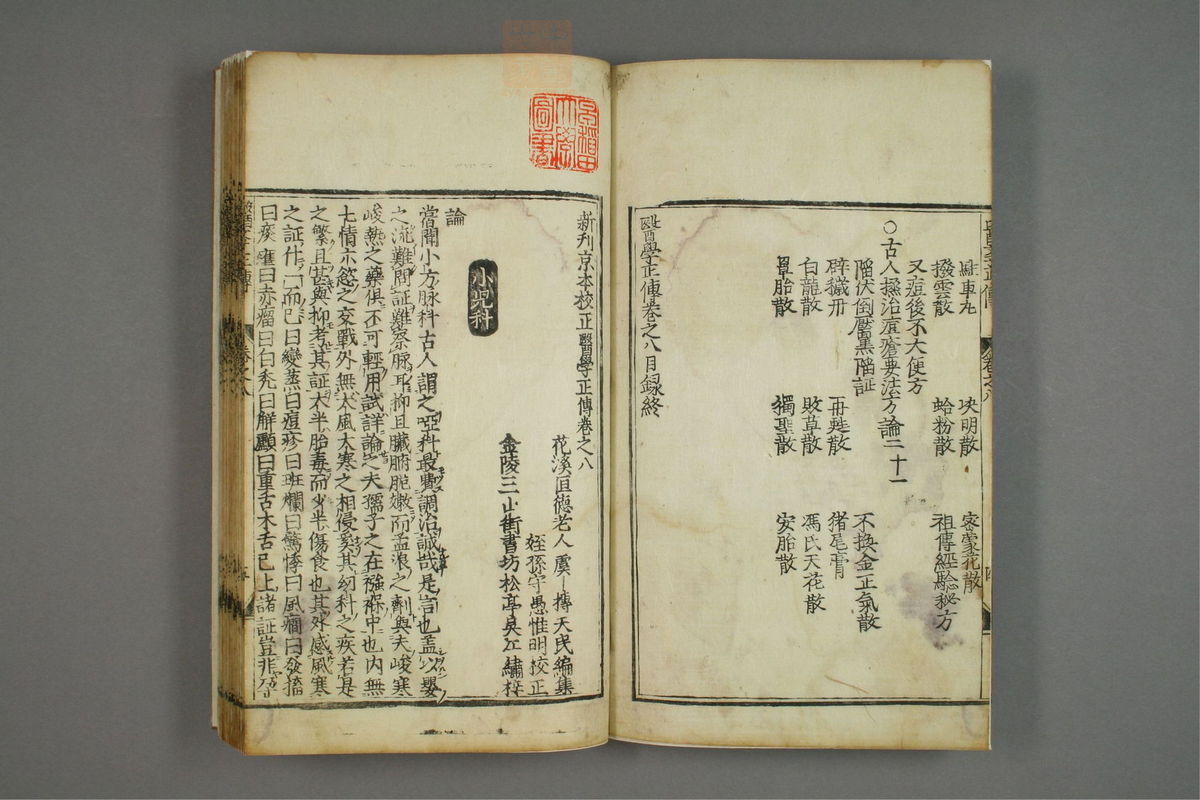 鼠車丸 决明散 密蒙花散
撥雲散 蛤粉散 祖傳經驗秘方
又痘後不大便方
○古人撮治痘瘡要法方論二十一
陷伏倒靨黑陷証 不換金正氣散
辟穢丹 再甦散 猪尾膏
白龍散 敗草散 馮氏天花散
罩胎散 獨聖散 安胎散
醫學正傳卷之八目録終
早稻田大學圖書
新刋京本校正醫學正傳卷之八
花溪恒德老人虞 搏天民編集
姪孫守愚惟明校正
金陵三山街書坊松亭吳江繡梓
小児科
論
嘗聞小方脉科古人謂之啞科最費調治誠哉是言也盖以嬰
之流難問証難察脉耳抑且臟腑脆嫩而孟浪之劑與夫峻寒
峻熱之藥俱不可輕用試詳論之夫孺子之在襁褓中也内無
七情六慾之交戰外無大風大寒之相侵奚其幼科之疾若是
之繁且甚與抑考其証大半胎毒而少半傷食也其外感風寒
之証什一而已曰變蒸曰痘疹曰斑爛曰驚悸曰風癇曰發搐
曰痰壅曰赤瘤曰白禿曰解顱曰重舌木舌已上諸証豈非孕